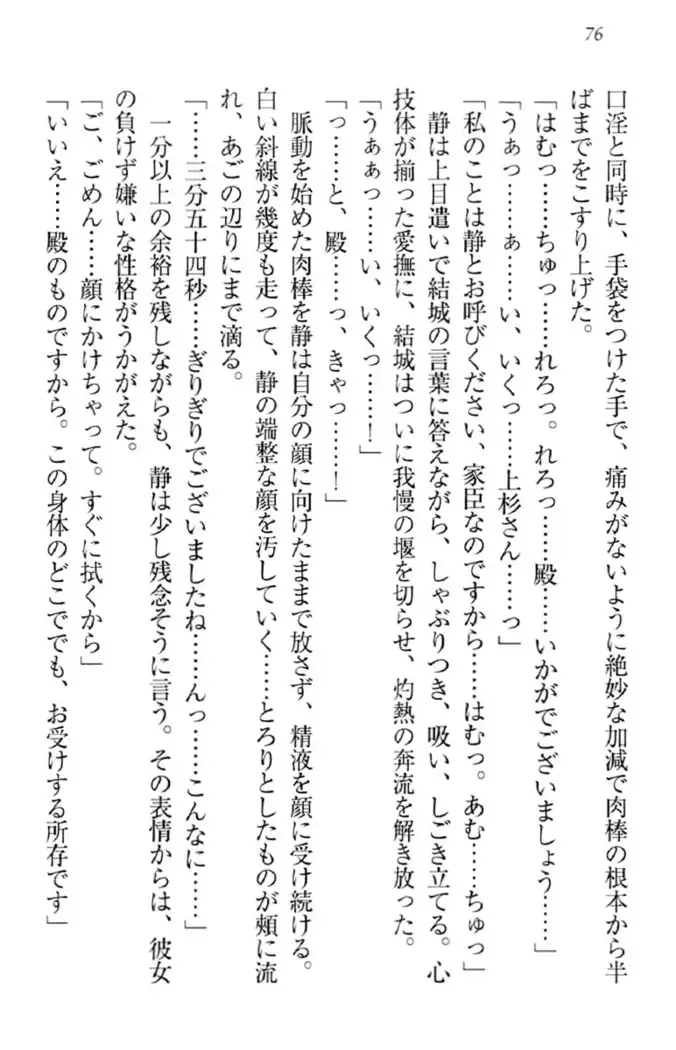 76
口淫と同時に、手袋をつけた手で、痛みがないように絶妙な加減で肉棒の根本から半
ばまでをこすり上げた。
「はむっ……ちゅっ……れろっ。れろっ……殿……いかがでございましょう……」
「うぁっ……ぁ……い、いくっ……上杉さん……っ」
「私のことは静とお呼びください、家臣なのですから……はむっ。あむ……ちゅっ」
静は上目遣いで結城の言葉に答えながら、しゃぶりつき、吸い、しごき立てる。心
技体が揃った愛撫に、結城はついに我慢の堰を切らせ、灼熱の奔流を解き放った。
「うぁぁっ……い、いくっ……！」
「っ……と、殿……っ、きゃっ……！」
脈動を始めた肉棒を静は自分の顔に向けたままで放さず、精液を顔に受け続ける。
白い斜線が幾度も走って、静の端整な顔を汚していく……とろりとしたものが頬に流
れ、あごの辺りにまで滴る。
「……三分五十四秒……ぎりぎりでございましたね……んっ……こんなに……」
一分以上の余裕を残しながらも、静は少し残念そうに言う。その表情からは、彼女
の負けず嫌いな性格がうかがえた。
「ご、ごめん……顔にかけちゃって。すぐに拭くから」
「いいえ……殿のものですから。この身体のどこででも、お受けする所存です」